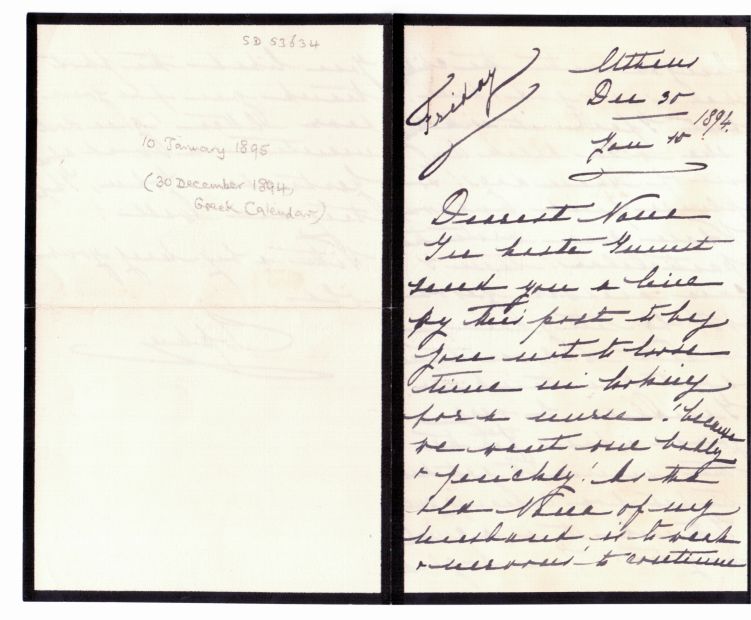 SD 53634
10 January 1895
(30 December 1894,
Greek Calendar)
Friday
Athens
Dec 30
Jan 10
1894.
Dearest Nona
In haste I must
send you a line
by this post to beg
you not to loose
time in looking
for a nurse! because
we want one badly
& quickly! As the
old Nana of my
husband is to weak
& nervous to continue